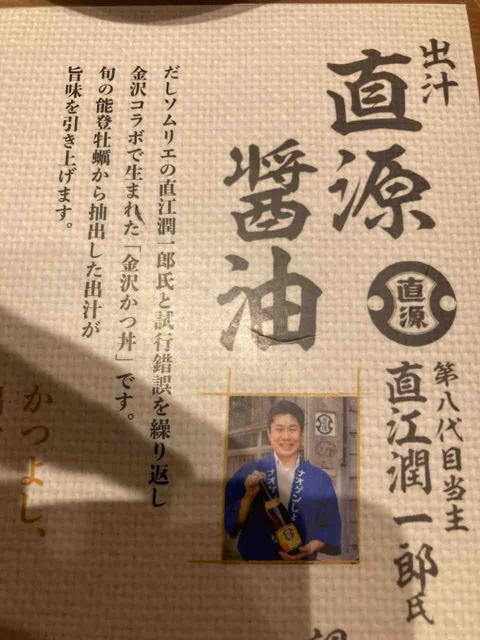 出汁
直源
醤油
直源
第八代目当主
直江潤一郎氏
だしソムリエの直江潤一郎氏と試行錯誤を繰り返し
金沢コラボで生まれた「金沢かつ丼」です。
旬の能登牡蠣から抽出した出汁が
旨味を引き上げます。
ナオゲンしょ
ナオゲ
かつよし、